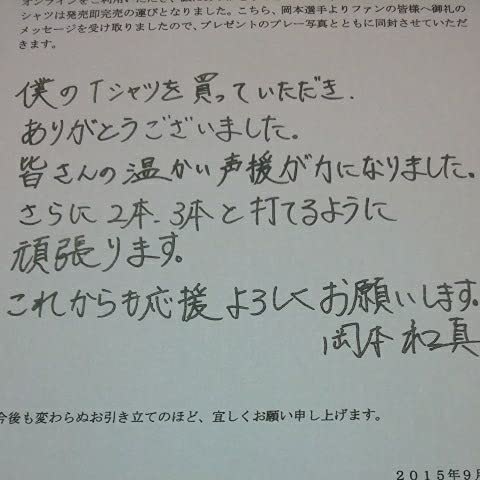 シャツは発売即完売の運びとなりました。こちら、岡本選手よりファンの皆様へ御礼の
メッセージを受け取りましたので、プレゼントのプレー写真とともに同封させていただ
きます。
僕のTシャツを買っていただき、
ありがとうございました。
皆さんの温かい声援が力になりました。
さらに2本、3本と打てるように
頑張ります。
これからも応援よろしくお願いします。
岡本和真
今後も変わらぬお引き立てのほど、宜しくお願い申し上げます。
2015年9月